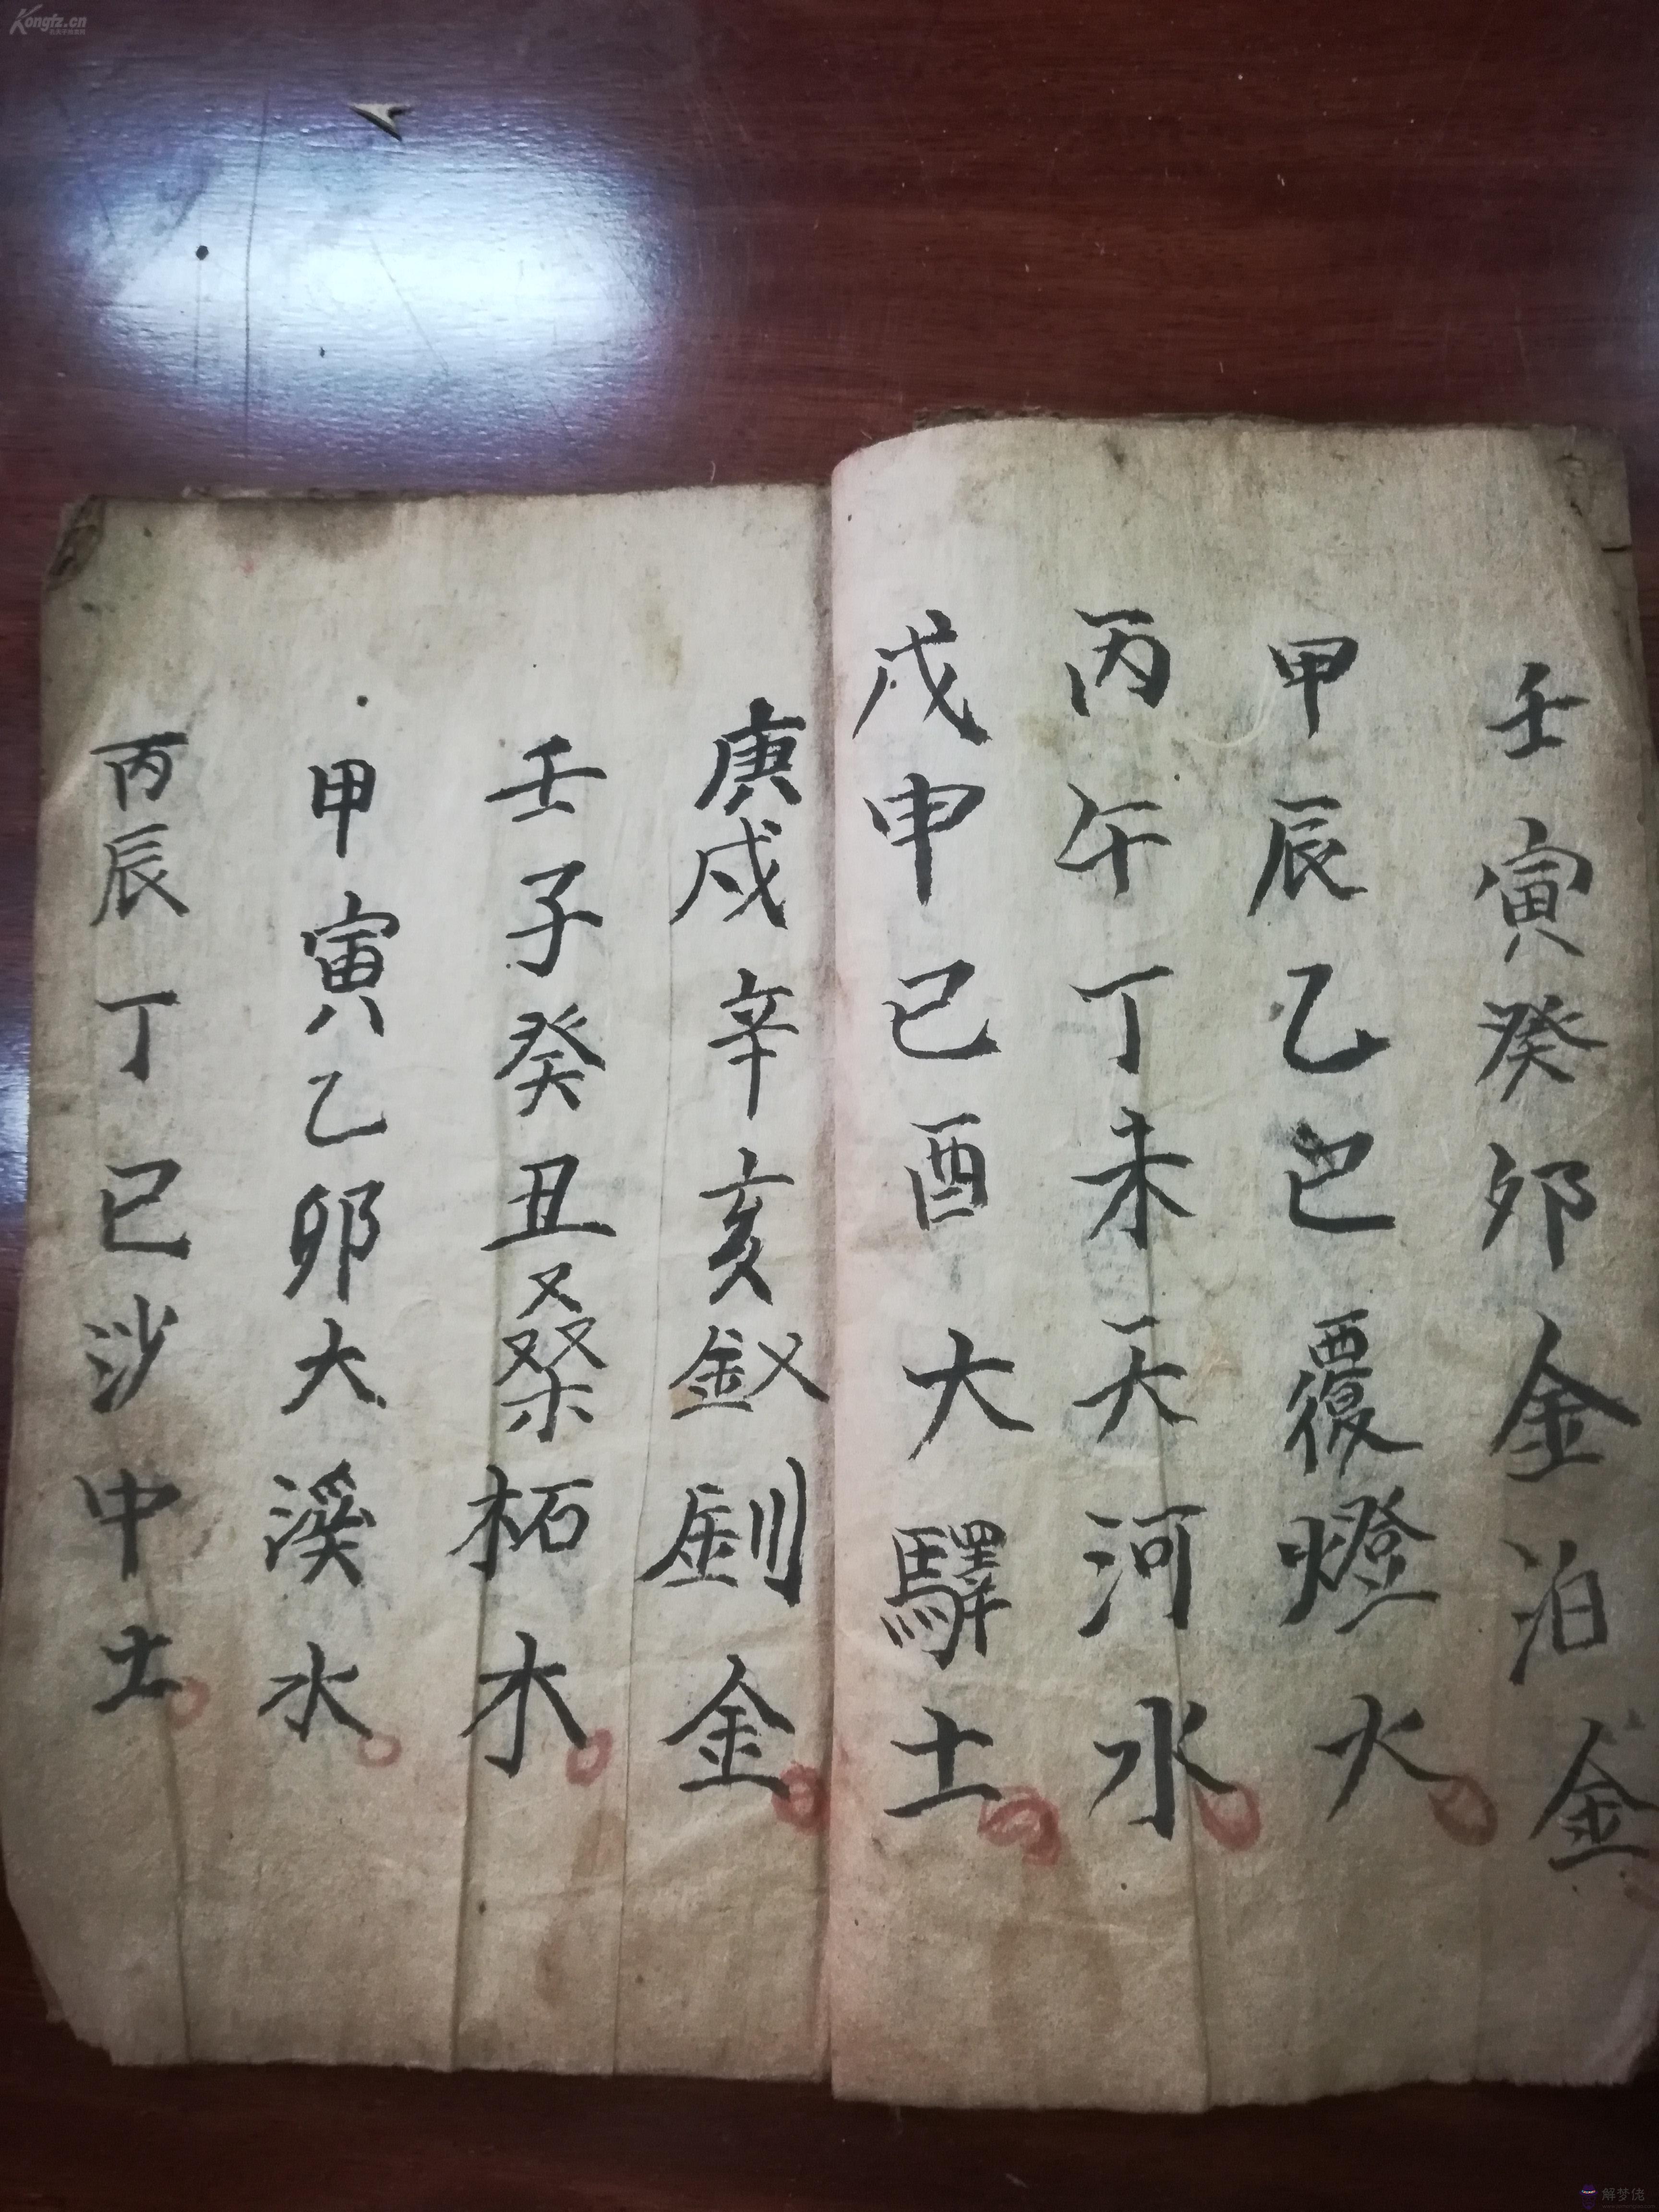 壬寅癸卯金泊金
甲辰乙巳覆燈火
丙午丁未天河水
戊申己酉大驛土
庚戌辛亥釵釧金
壬子癸丑桑柘木
甲寅乙卯大溪水
丙辰丁巳沙中土
Kongfz.cn
解梦佬